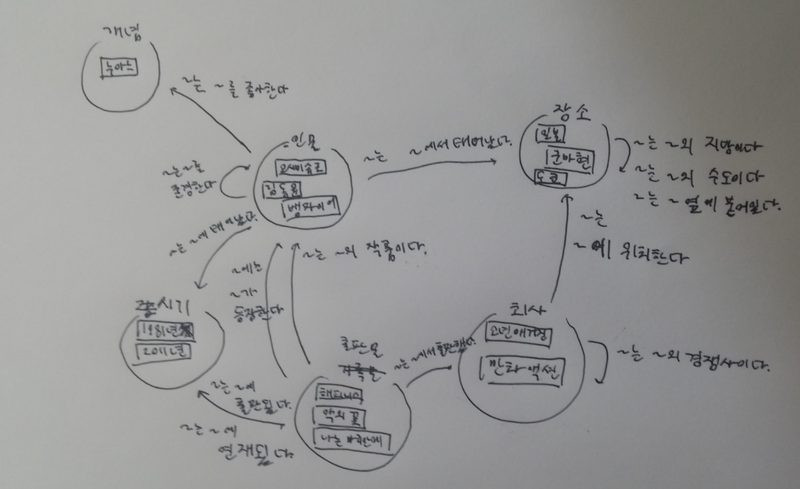 개념
누아르
~는 ~를 묘사한다
인물
오시미슈조
김동원
뱀파이어
~는 ~를
존경한다
~는 ~에서 태어났다.
장소
일본
군마현
도쿄
~는 ~의 지방이다
~는 ~의 수도이다
~는 ~ 옆에 붙어있다.
~는 ~에 태어났다.
~에는
~가
등장한다
~는 ~의 작품이다.
~는
~에 위치한다
시기
1981년
2011년
~는 ~에
출판됨.
~는 ~에
연재됨 다.
출판물
해피니스
악의 꽃
나는 마리안에
~는 ~에서 출판했다.
회사
만화액션
~는 ~의 경쟁사이다.